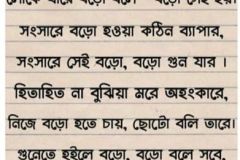 সংসারে বড়ো হওয়া কঠিন ব্যাপার,
সংসারে সেই বড়ো, বড়ো গুন যার ।
হিতাহিত না বুঝিয়া মরে অহংকারে,
নিজে বড়ো হতে চায়, ছোটো বলি তারে।
গুনেতে হইলে বড়ো, বড়ো বলে সবে,